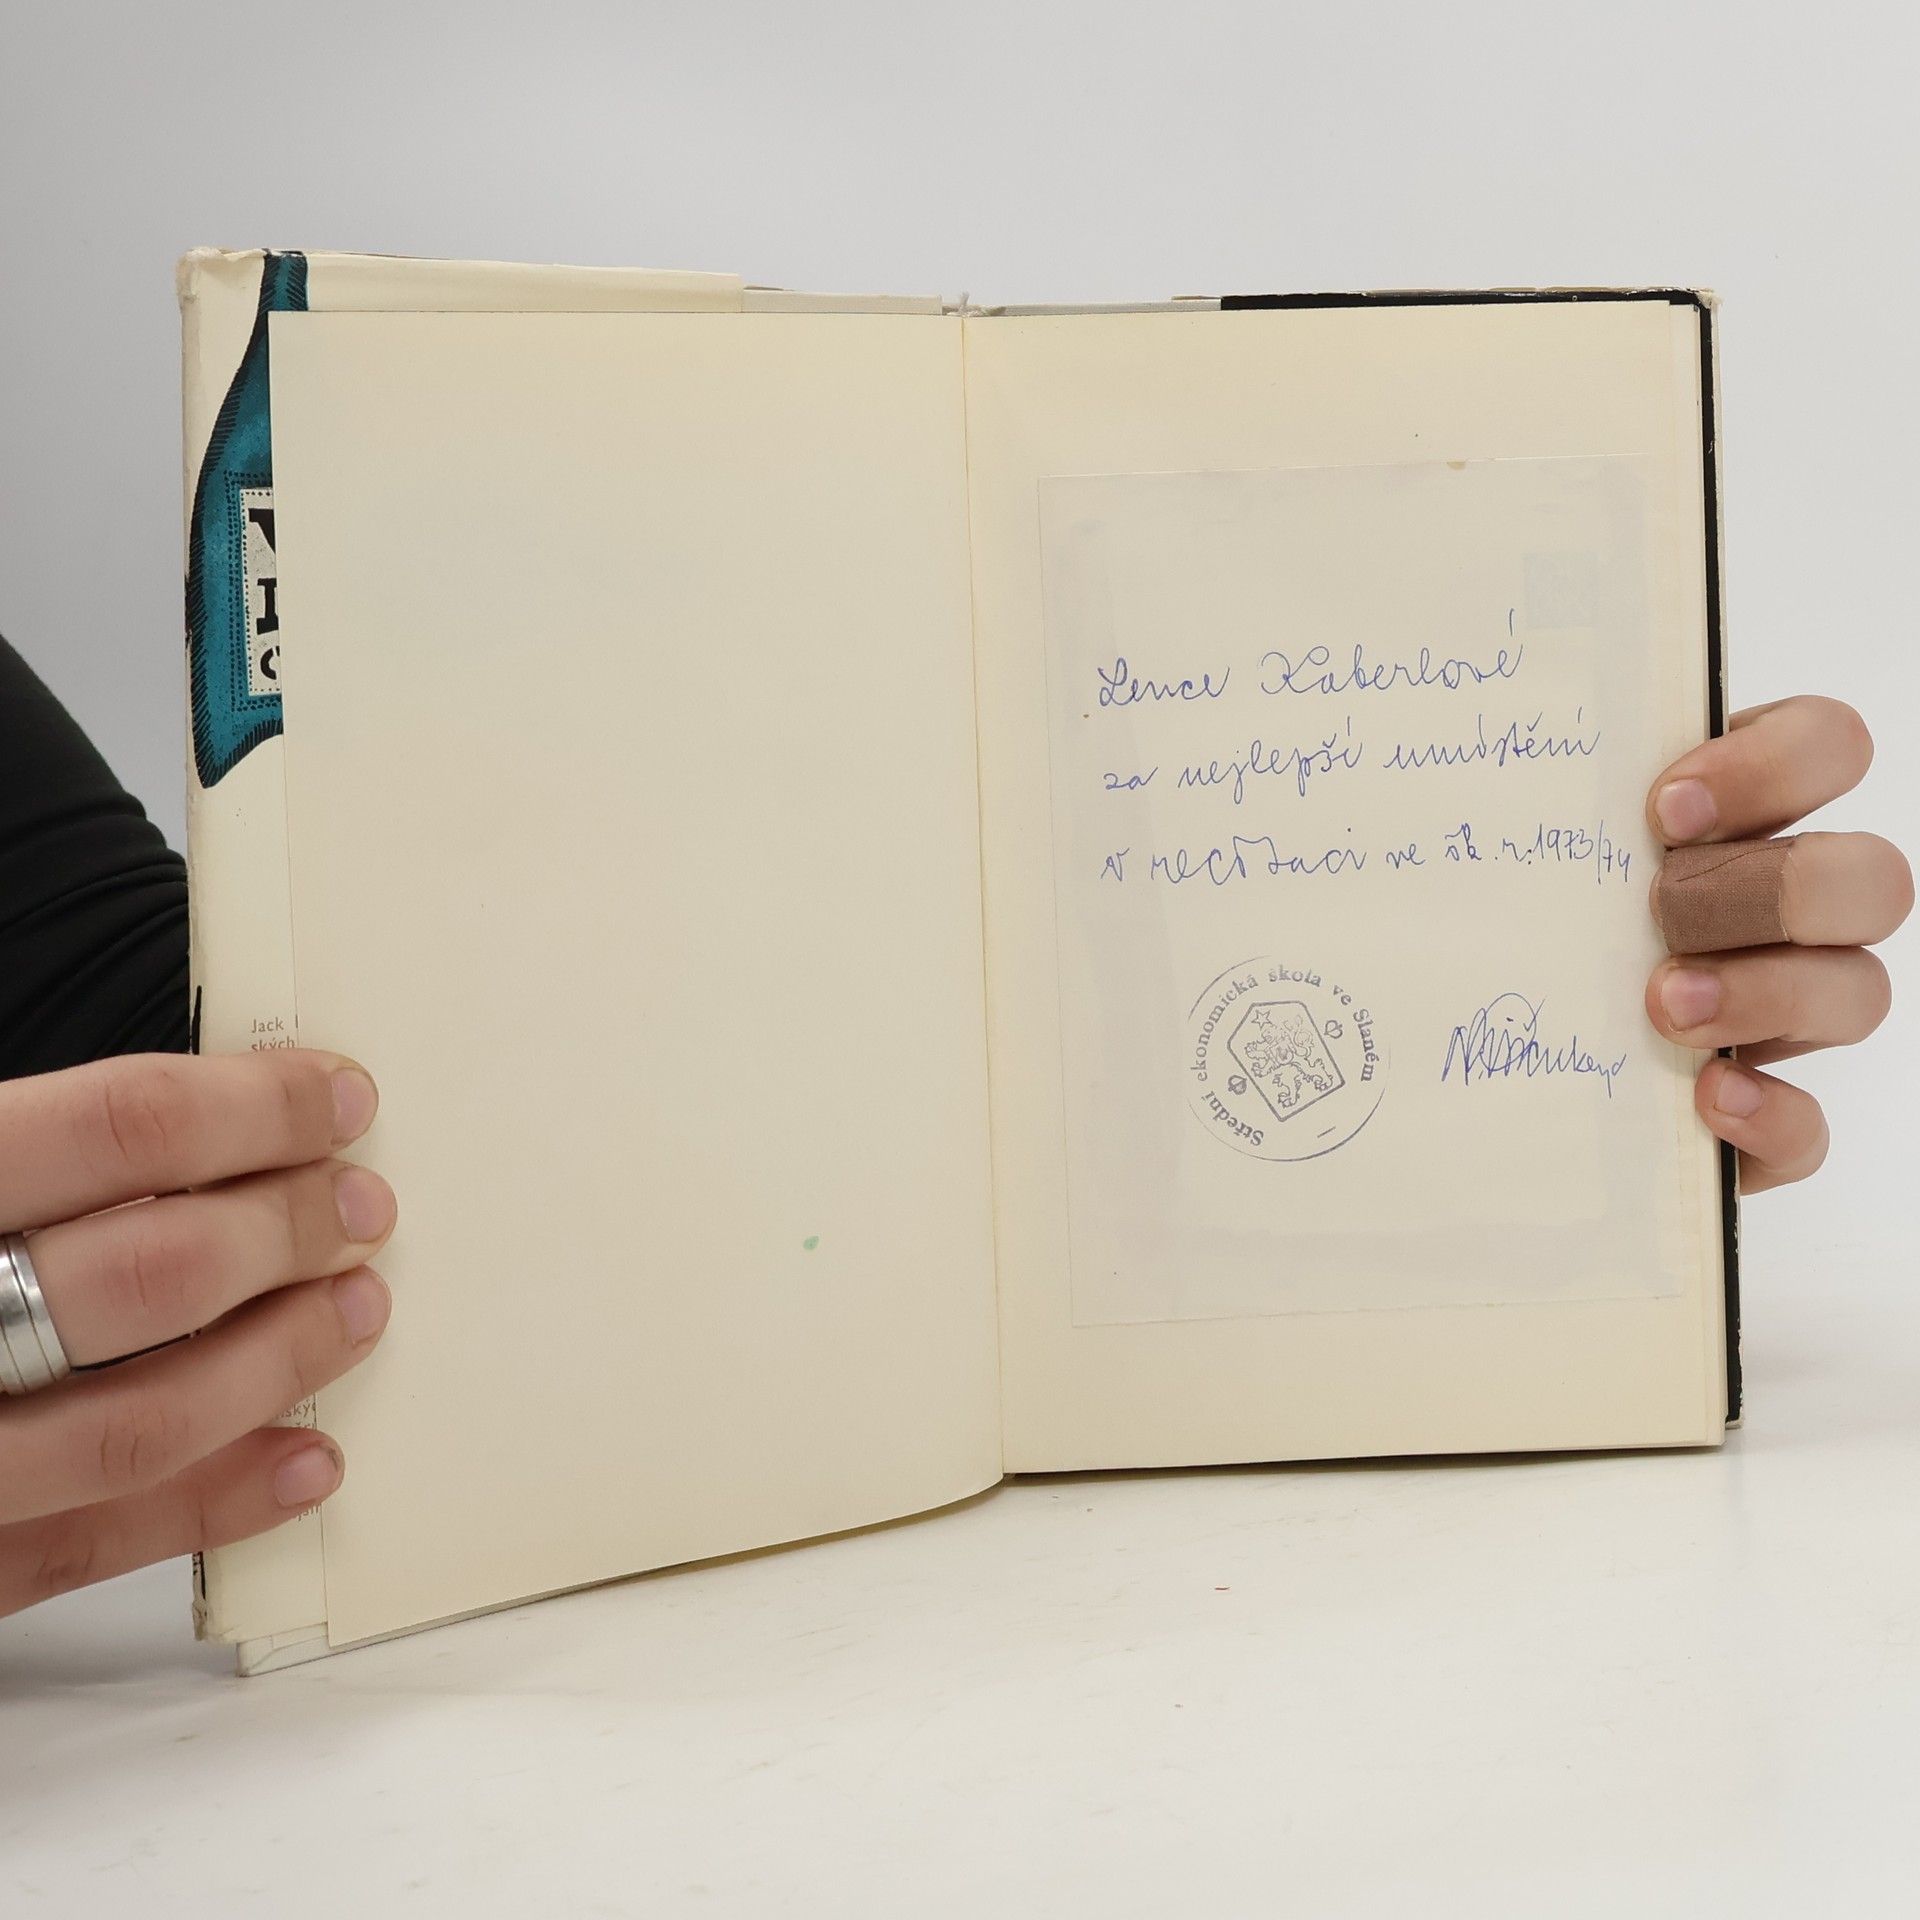 Jack
ských
Lence Kaberlové
za nejlepší umístění
v recitaci ve šk. r. 1973/74
Střední ekonomická škola ve Slaném